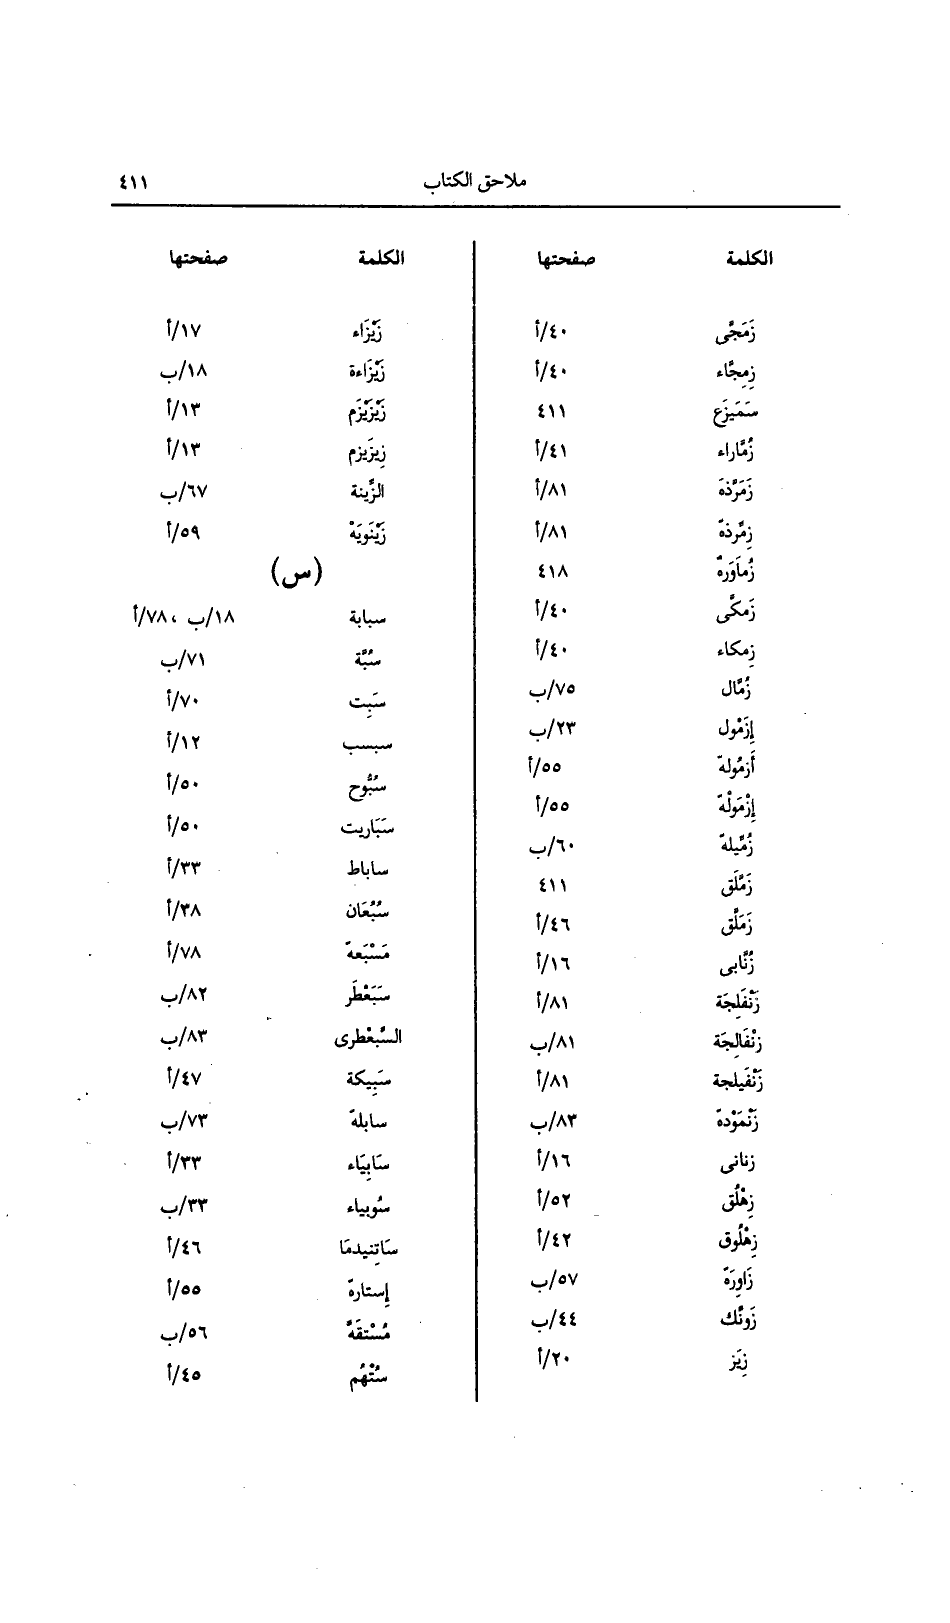 ملاحق الكتاب ٤١١
الكلمة صفحتها
زَمَجَّى ٤٠/أ
زِمِجَّاء ٤٠/أ
سَمَيزَع ٤١١
زُمَّاراء ٤١/أ
زَمَرَّذة ٨١/أ
زِمَّرذة ٨١/أ
زُماَوَرة ٤١٨
زَمَكَّى ٤٠/أ
زِمِكاء ٤٠/أ
زُمَّال ٧٥/ب
إِزَمْول ٢٣/ب
أَزمُولة ٥٥/أ
إِزْمَولْة ٥٥/أ
زُمَّيلة ٦٠/ب
زَمَّلَق ٤١١
زَمَلَّق ٤٦/أ
زُنَّابى ١٦/أ
زَنْفَلِجَة ٨١/أ
زنْفَالِجَة ٨١/ب
زَنْفَيلجة ٨١/أ
زَنْمَوْدة ٨٣/ب
زنانى ١٦/أ
زِهْلُق ٥٢/أ
زِهْلُوق ٤٢/أ
زَاوِرَة ٥٧/ب
زَونَّك ٤٤/ب
زِيَز ٢٠/أ
الكلمة صفحتها
زَيْزَاء ١٧/أ
زَيْزَاءة ١٨/ب
زَيْزَيْزَم ١٣/أ
زِيزَيزم ١٣/أ
الزَّينة ٦٧/ب
زَيْنَويَةْ ٥٩/أ
(س)
سبابة ١٨/ب ، ٧٨/أ
سُبَّة ٧١/ب
سَبِت ٧٠/أ
سبسب ١٢/أ
سُبُّوح ٥٠/أ
سَبَاريت ٥٠/أ
ساباط ٣٣/أ
سُبُعَان ٣٨/أ
مَسْبَعة ٧٨/أ
سَبَعْطَر ٨٢/ب
السَّبعْطرى ٨٣/ب
سَبِيكة ٤٧/أ
سابلة ٧٣/ب
سَابِيَاء ٣٣/أ
سُوبياء ٣٣/ب
سَاتِنيدمَا ٤٦/أ
إِستارة ٥٥/أ
مُسْتقَة ٥٦/ب
سُتْهُم ٤٥/أ